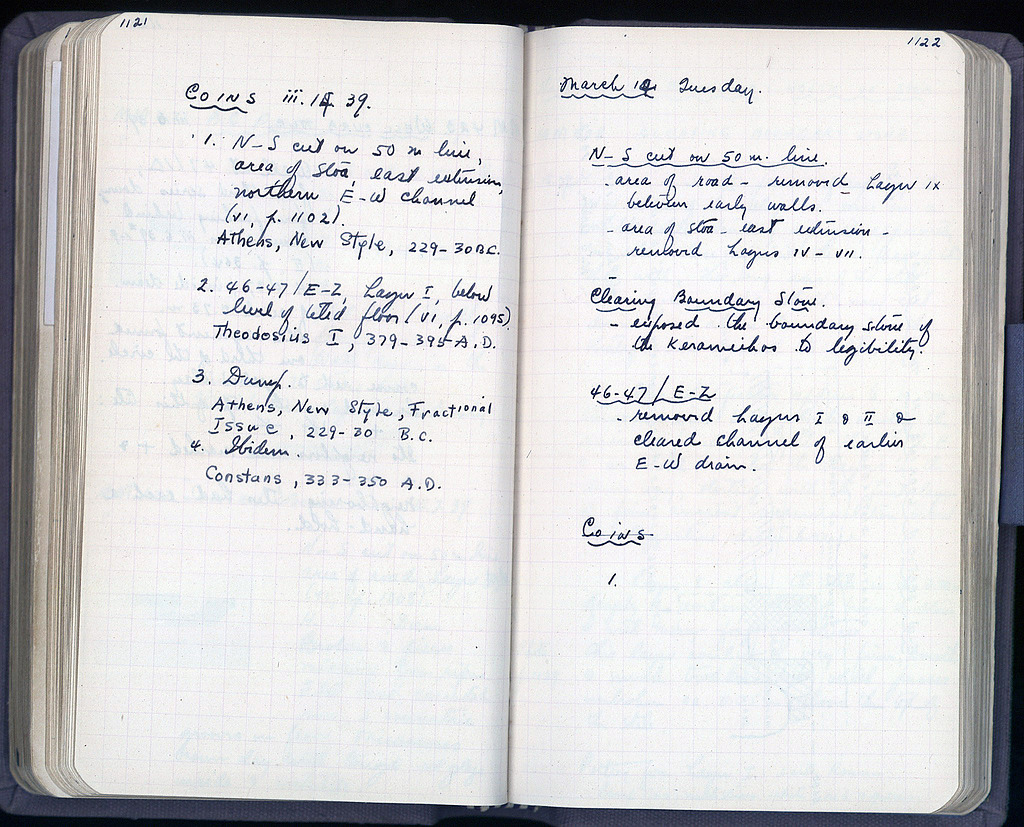 1121
Coins iii. 14. 39.
1. N-S cut on 50 m line,
area of Stoa, east extension,
northern E-W channel
(VI, p. 1102).
Athens, New Style, 229-30 B.C.
2. 46-47/E-Z, Layer I, below
level of tiled floor (VI, p. 1095)
Theodosius I, 379-395 A.D.
3. Dump.
Athens, New Style, Fractional
Issue, 229-30 B.C.
4. Ibidem.
Constans, 333-350 A.D.
1122
March 14 Tuesday.
N-S cut on 50 m. line.
- area of road - removed Layer IX
between early walls.
- area of stoa - east extension -
removed Layers IV - VII.
Clearing Boundary Stone.
- exposed the boundary stone of
the Kerameikos to legibility.
46-47/E-Z
- removed Layers I & II &
cleared channel of earlier
E-W drain.
Coins
1.